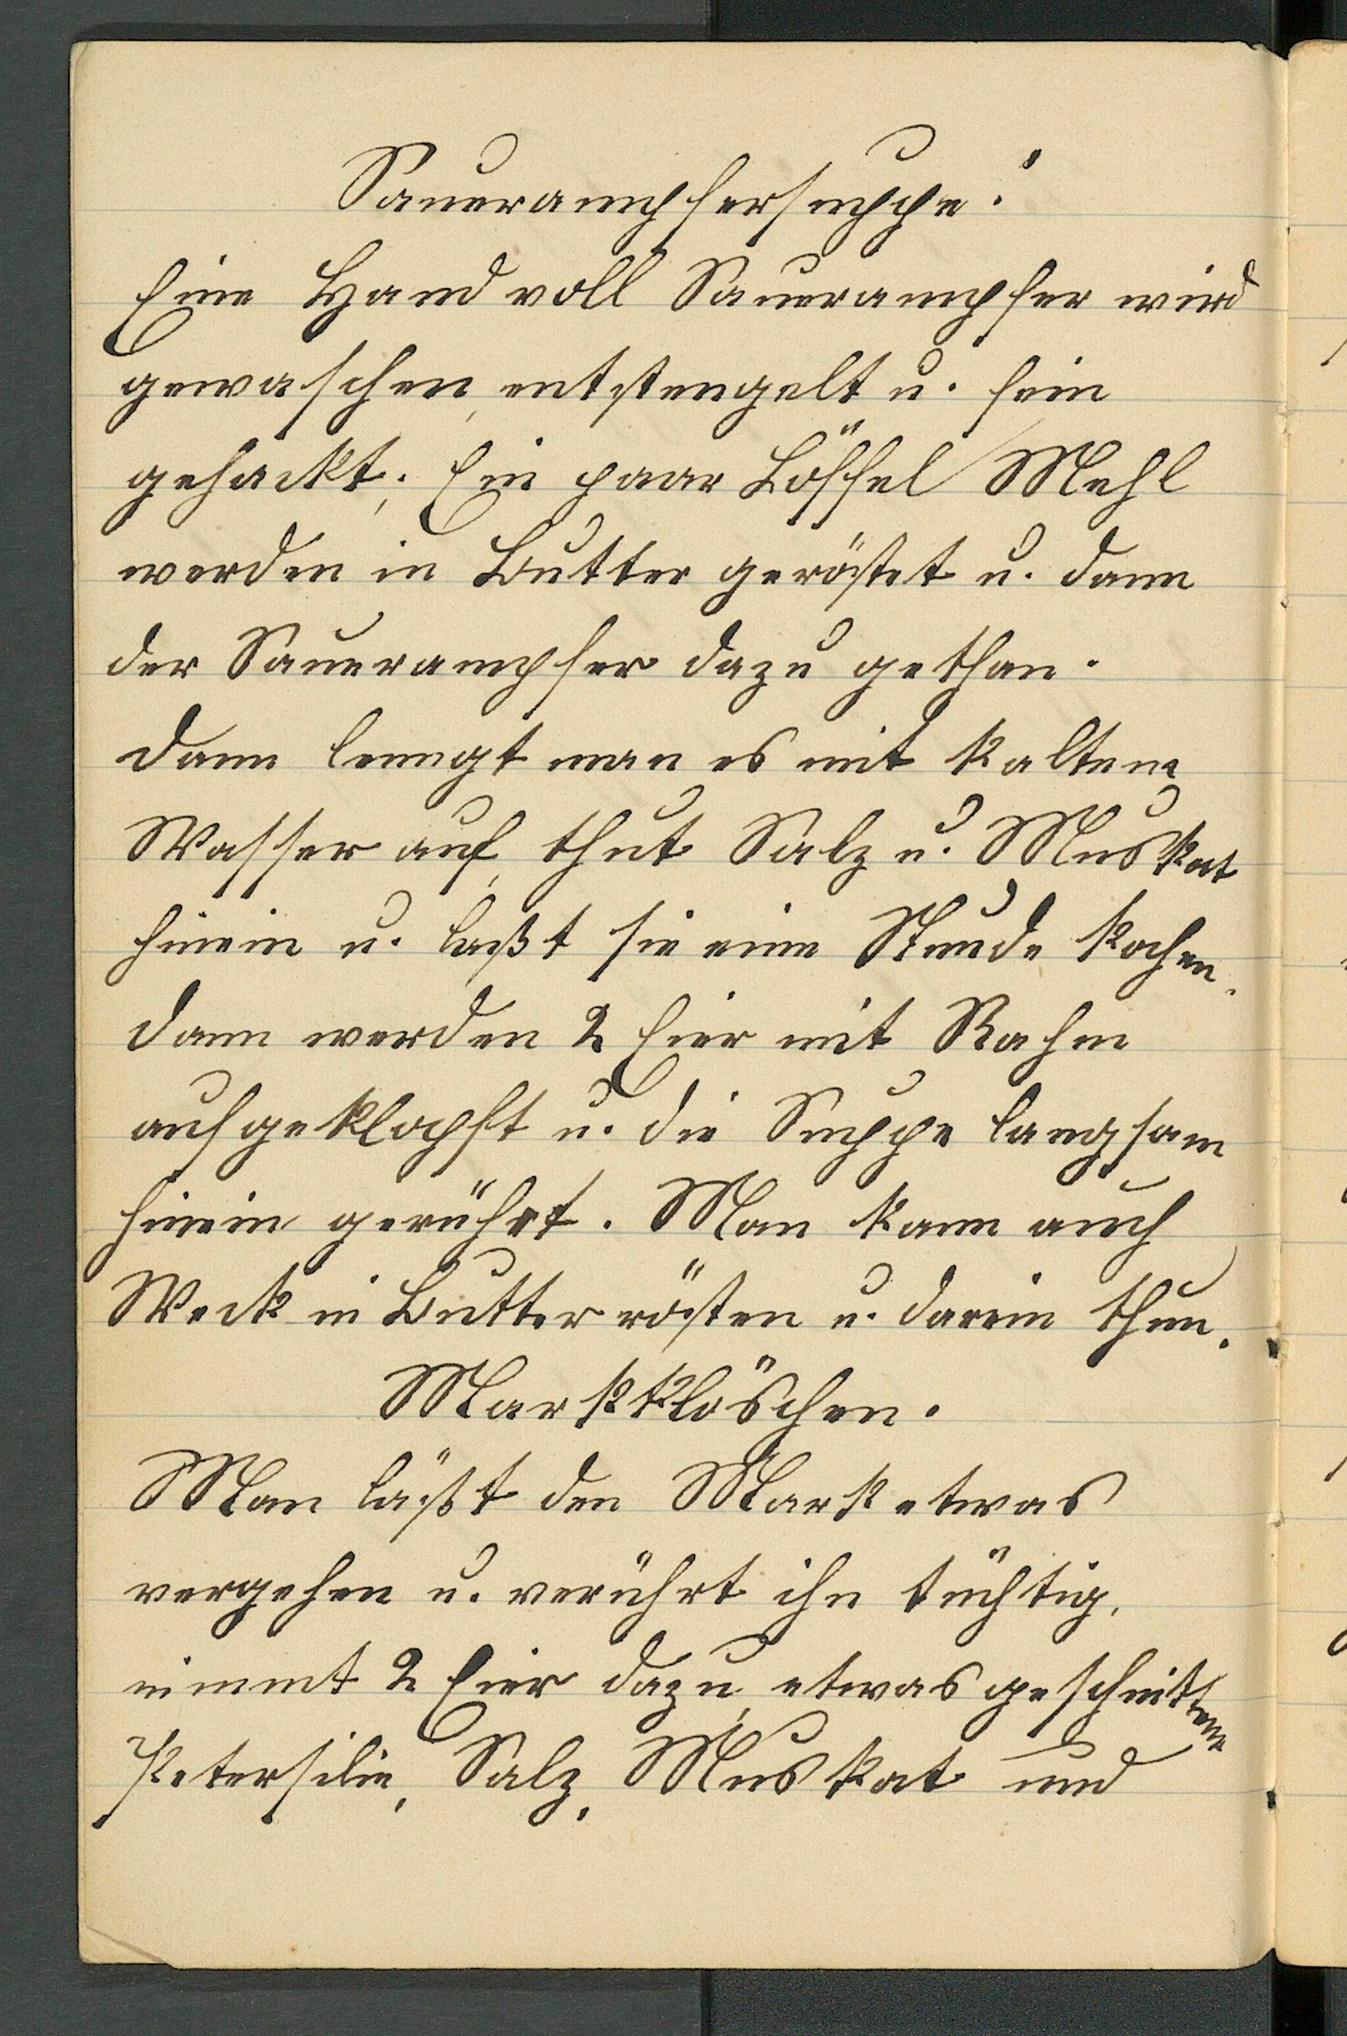 Sauerampfersuppe.
Eine Hand voll Sauerampfer wird
gewaschen, entstengelt u. fein
gehackt; Ein paar Löffel Mehl
werden in Butter geröstet u. dann
der Sauerampfer dazu gethan.
Dann man es mit kaltem
Wasser auf, thut Salz u. Muskat
hinein u. laßt sie eine Stunde kochen.
Dann werden 2 Eier mit Rahm
aufgeklopft u. die Suppe langsam
hinein gerührt. Man kann auch
Weck in Butter rösten u. darein thun.
Markklöschen.
Man läßt den Mark etwas
vergehen u. verührt ihn tüchtig,
nimmt 2 Eier dazu, etwas geschnittene
Petersilie, Salz, Muskat und